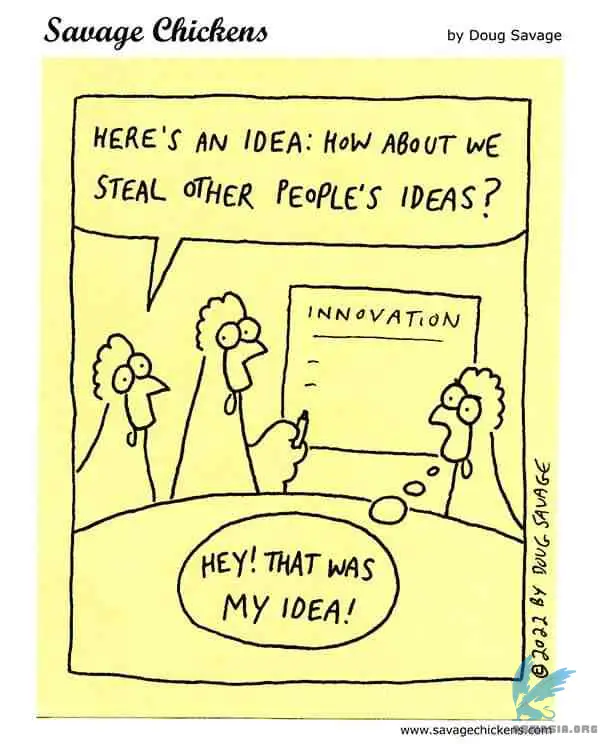 Savage Chickens
by Doug Savage
HERE'S AN IDEA: HOW ABOUT WE
STEAL OTHER PEOPLE'S IDEAS?
INNOVATION
HEY! THAT WAS
MY IDEA!
©2022 BY DOUG SAVAGE
www.savagechickens.com